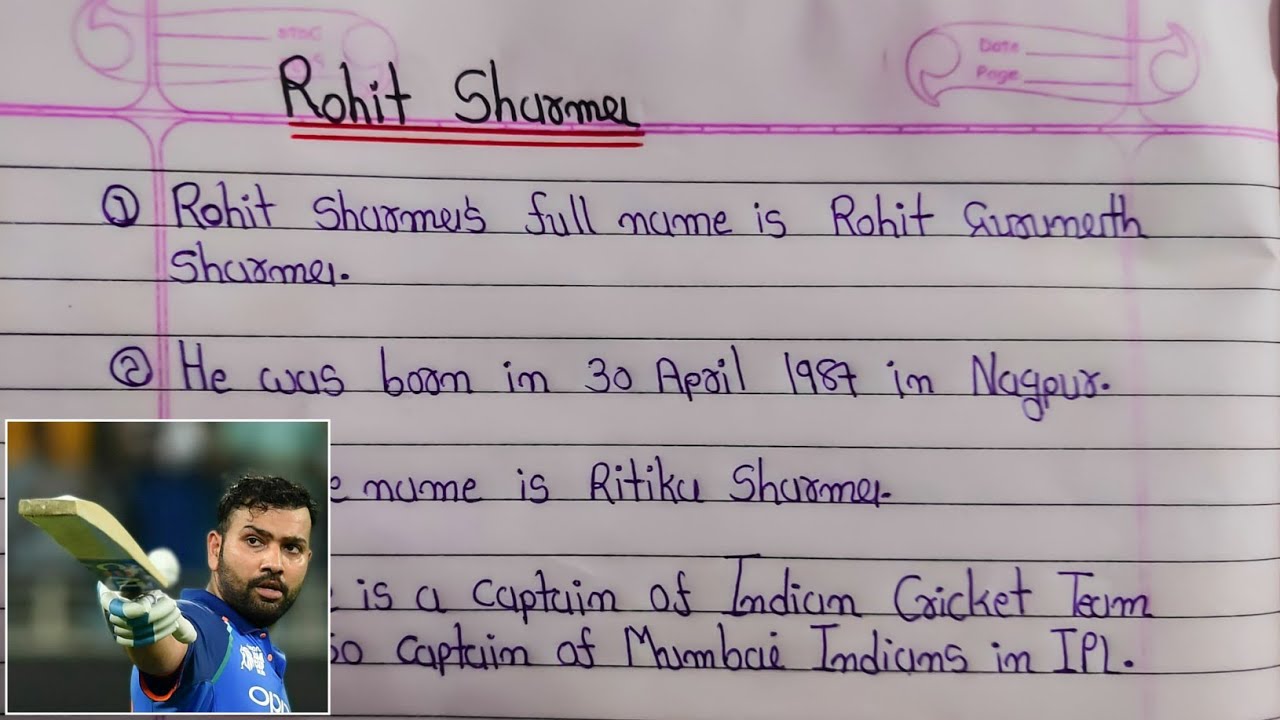 Date
Page
Rohit Sharma
① Rohit Sharma's full name is Rohit Gurunath
Sharma.
② He was born in 30 April 1987 in Nagpur.
e name is Ritika Sharma.
is a captain of Indian Cricket Team
so captain of Mumbai Indians in IPL.
opp